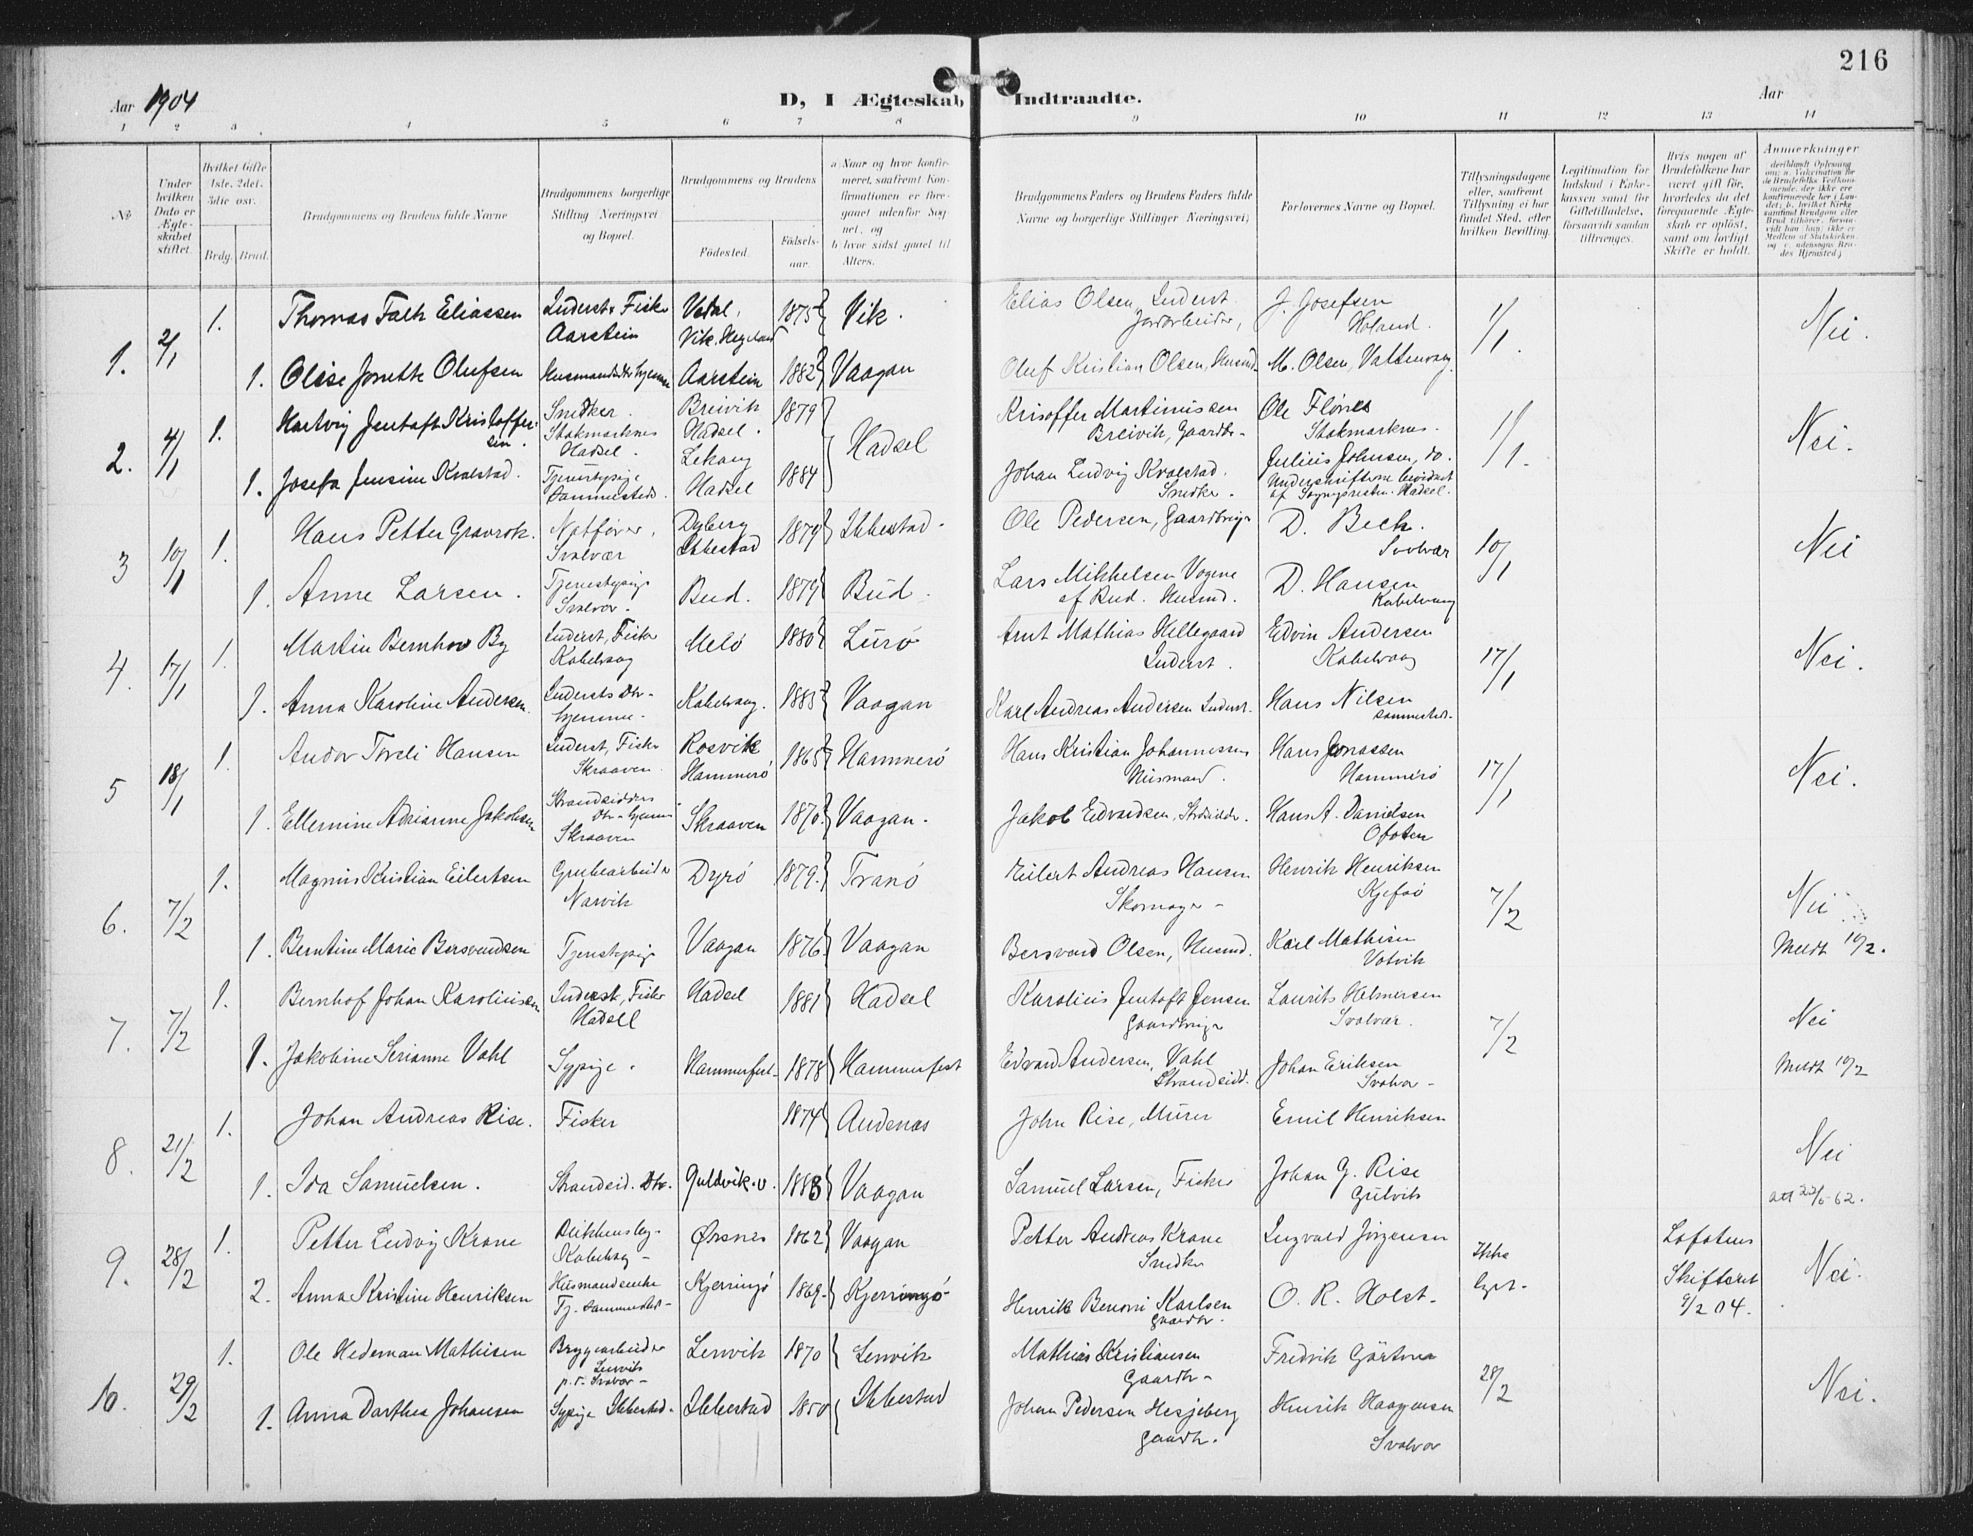 216
Aar 1904
D, I Ægteskab Indtraadte.
Aar
1 2 3 4 5 6 7 8 9 10 11 12 13 14
No.
Under hvilken Dato er Ægteskabet stiftet.
Hvilket Gifte 1ste, 2det, 3die osv.
Brdg. Brud.
Brudgommens og Brudens fulde Navne
Brudgommens borgerlige Stilling Næringsvei og Bopæl.
Brudgommens og Brudens
Fødested.
Fødsels-aar.
a Naar og hvor konfirmeret, saafremt Konfirmationen er foregaaet udenfor Sognet, og
b hvor sidst gaaet til Alters.
Brudgommens Faders og Brudens Faders fulde Navne og borgerlige Stillinger Næringsvei;
Forlovernes Navne og Bopæl.
Tillysningsdagene eller, saafremt Tillysning ei har fundet Sted, efter hvilken Bevilling.
Legitimation for Indskud i Enkekassen samt for Giftetilladelse, forsaavidt saadan tiltrænges.
Hvis nogen af Brudefolkene har været gift før, hvorledes da det foregaaende Ægteskab er opløst, samt om lovligt Skifte er holdt.
Anmerkninger
1. 2/1
1. Thomas Falk Eliassen Inderst, Fisker Aarstein 1875 Vik. Elias Olsen, Inderst Jordarbeider, J. Josefsen Holand. 1/1. Nei.
1. Olise Jonette Olufsen Aarstein 1882 Vaagan Oluf Kristian Olsen, Husmd. M. Olsen,
2. 4/1
1. Hartvig Jentoft Kristoffersen. Snedker. Stokmarknes Hadsel. Breivik Hadsel. 1879 Hadsel Krisoffer Martinussen Breivik, Gaardbr- Ole Flønes Stokmarknes. 1/1. Nei.
1. Josefa Jensine Kvalstad. Tjenestepige Sammesteds. Lekang Hadsel 1884 Johan Ludvig Kvalstad. Snedker. Julius Johnsen, do.
3 10/1
1. Hans Petter Gravrok. Notfører, Svolvær Dyberg Ibbestad 1879 Ibbestad. Ole Pedersen, Gaardbruger D. Beck. Svolvær 10/1 Nei
1. Anne Larsen. Tjenestepige Svolvær. Bud. 1879 Bud. Lars Mikkelsen Vogene af Bud. Husmd. D. Hansen Kabelvaag
4. 17/1
1. Martin Bernhov By Inderst, Fisker Kabelvaag Melø 1880 Lurø Arnt Mathias Hellegaard Inderst. Edvin Andersen Kabelvaag 17/1 Nei.
1. Anna Karoline Andersen. Indersts Dtr. hjemme. Kabelvaag. 1885 Vaagan Karl Andreas Andersen Inderst. Hans Nilsen sammesteds.
5 18/1
1. Andor Toreli Hansen Inderst, Fisker Skraaven Rosvik Hammerø 1865 Hammerø Hans Kristian Johannessen Husmand. Hans Jonassen Hammerø 17/1 Nei.
1. Ellemine Adrianne Jakobsen Strandsidders Dtr. hjemme Skraaven Skraaven 1870 Vaagan. Jakob Edvardsen, Strdsidder. Hans A. Danielsen Ofoten
6. 7/2
1. Magnus Kristian Eilertsen Grubearbeider Narvik Dyrø 1879. Tranø Eilert Andreas Hansen Skomager - Henrik Henriksen 7/2 Nei
1. Berntine Marie Bersvendsen Tjenstepige Vaagan 1876. Vaagan Bersvend Olsen, Husmd. Karl Mathisen Votvik Meldt 10/2.
7. 7/2
1. Bernhof Johan Karoliussen Inderst, Fisker Hadsel Hadsel 1881 Hadsel Karolius Jentoft Jensen Gaardbruger Laurits Helmersen Svolvær. 7/2 Nei
1. Jakobine Serianne Vahl Sypige. Hammerfest- 1878 Hammerfest Edvard Andersen, Vahl Strandsidd. Johan Eriksen Svolvær - Meldt 10/2
8. 21/2
1. Johan Andreas Rise. Fisker 1874 Andenæs John Rise, Murer Emil Henriksen Nei
1. Ida Samuelsen. Strandsid. Dtr. Guldvik.V. 1883 Vaagan Samuel Larsen, Fisker Johan G. Rise Gulvik
9. 28/2
1. Petter Ludvig Krane Blikkenslag. Kabelvaag - Ørsnes 1862 Vaagan Petter Andreas Krane Snedker Ingvald Jørgensen Ikke lyst. Lofotens Skifteret 9/2 04. Nei.
2. Anna Kristine Henriksen Husmandsenke Tj. sammesteds- Kjerringø 1869. Kjerringø Henrik Benoni Karlsen Gaardbr. O. R. Holst.
10. 29/2
1. Ole Hedeman Mathisen Bryggearbeider Lenvik p.t. Svolvær - Lenvik 1870 Lenvik Mathias Kristiansen Gaardbr- Fredrik Gärtner 28/2 Nei.
1. Anna Dorthea Johansen Sypige Ibbestad. Ibbestad 1880 Ibbestad Johan Pedersen Hesjeberg Gaardbr. Henrik Haagensen Svolvær